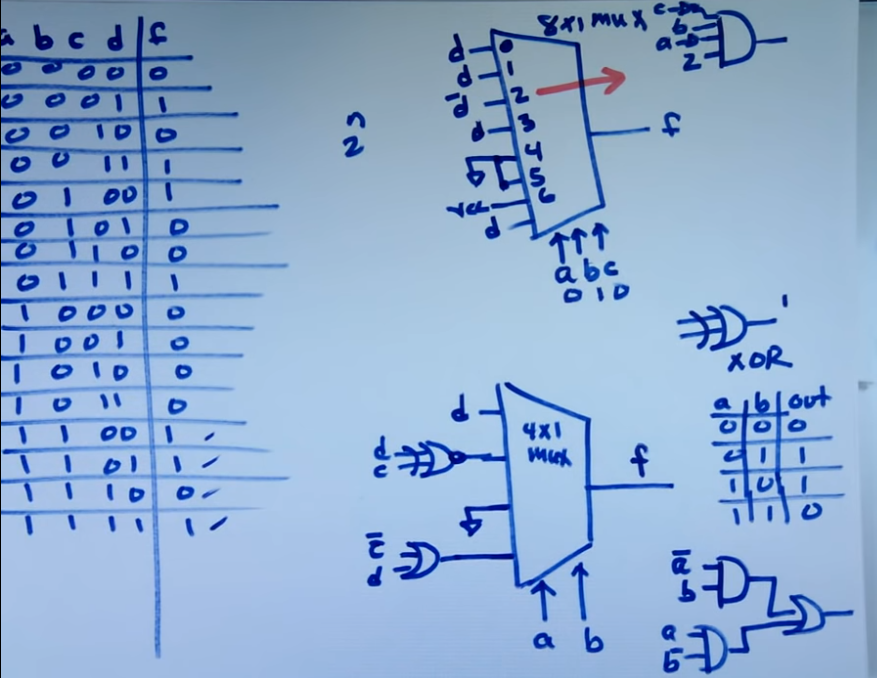 a b c d f
0 0 0 0 0
0 0 0 1 1
0 0 1 0 0
0 0 1 1 1
0 1 0 0 1
0 1 0 1 0
0 1 1 0 0
0 1 1 1 1
1 0 0 0 0
1 0 0 1 0
1 0 1 0 0
1 0 1 1 0
1 1 0 0 1
1 1 0 1 1
1 1 1 0 0
1 1 1 1 1
2ⁿ
8x1 mux
d 0
d 1
d̅ 2
d 3
4
5
vcc 6
d
f
a b c
0 1 0
c
b
a
2
1
XOR
a b out
0 0 0
0 1 1
1 0 1
1 1 0
4x1
mux
d
d
c
c̅
d
f
a b
a̅
b
a
b̅